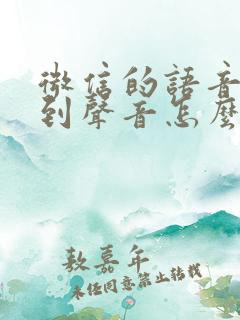 微信的語音
到聲音怎麼
敖嘉年
未經同意禁止轉載